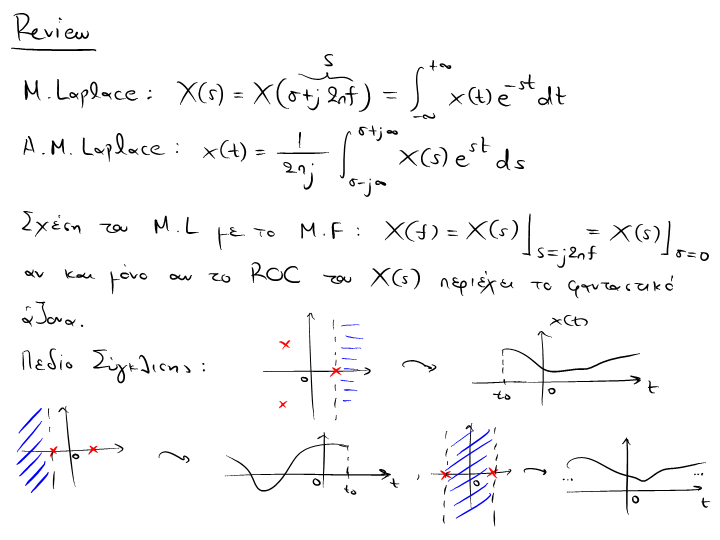 Review
M. Laplace : X(s) = X(σ+j2πf) = ∫_{-∞}^{+∞} x(t) e^{-st} dt
s
A.M. Laplace : x(t) = 1/(2πj) ∫_{σ-j∞}^{σ+j∞} X(s) e^{st} ds
Σχέση του M.L με το M.F : X(f) = X(s)|_{s=j2πf} = X(s)|_{σ=0}
αν και μόνο αν το ROC του X(s) περιέχει το φανταστικό
άξονα.
Πεδίο Σύγκλισης :
0
x(t)
t₀ 0 t
0
0 t₀ t ,
0
... 0 ... t